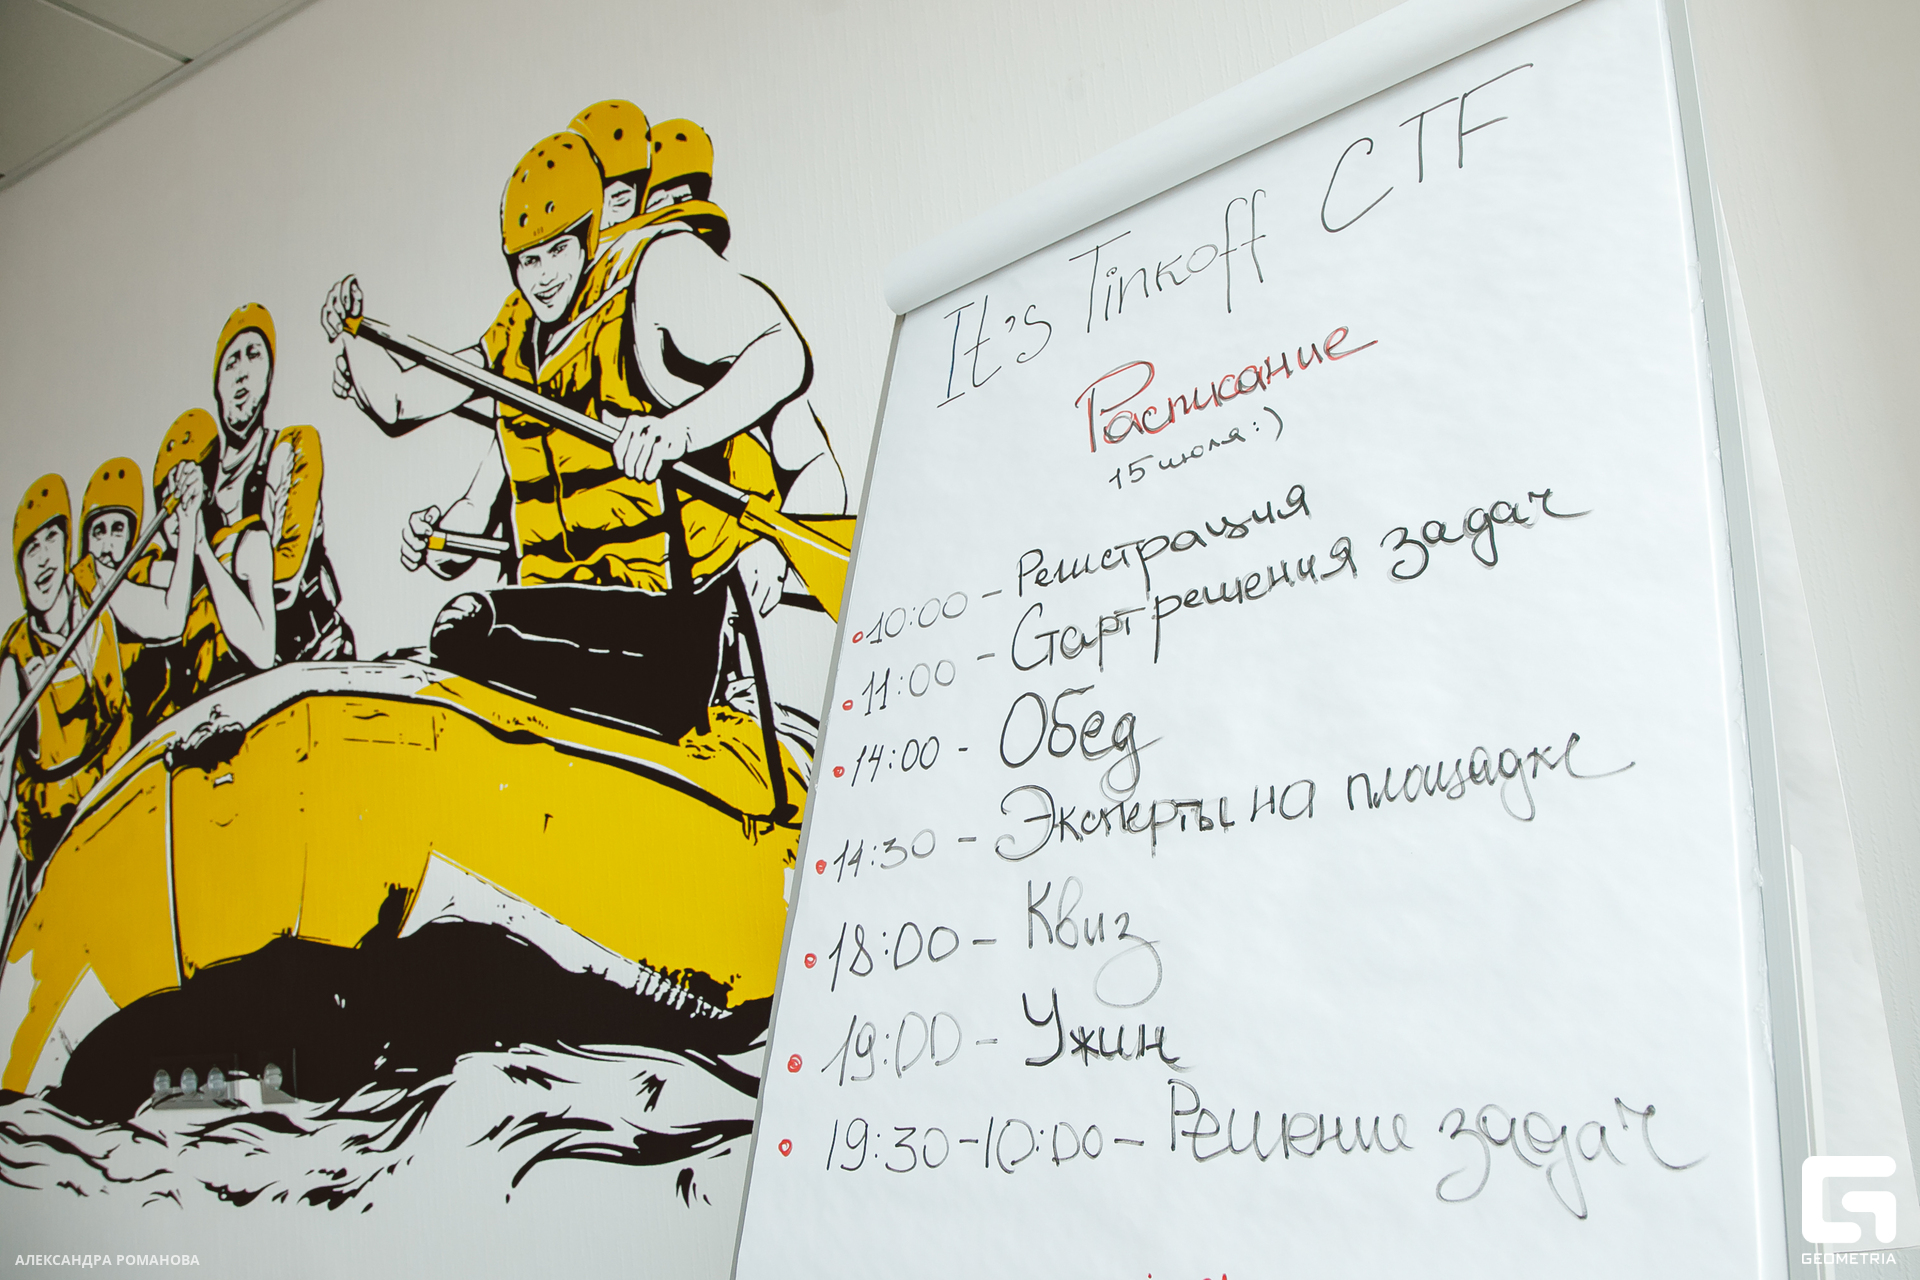 It's Tinkoff CTF
Расписание
15 июля :)
10:00 - Регистрация
11:00 - Старт решения задач
14:00 - Обед
14:30 - Эксперты на площадке
18:00 - Квиз
19:00 - Ужин
19:30-10:00 - Решение задач
АЛЕКСАНДРА РОМАНОВА
GEOMETRIA